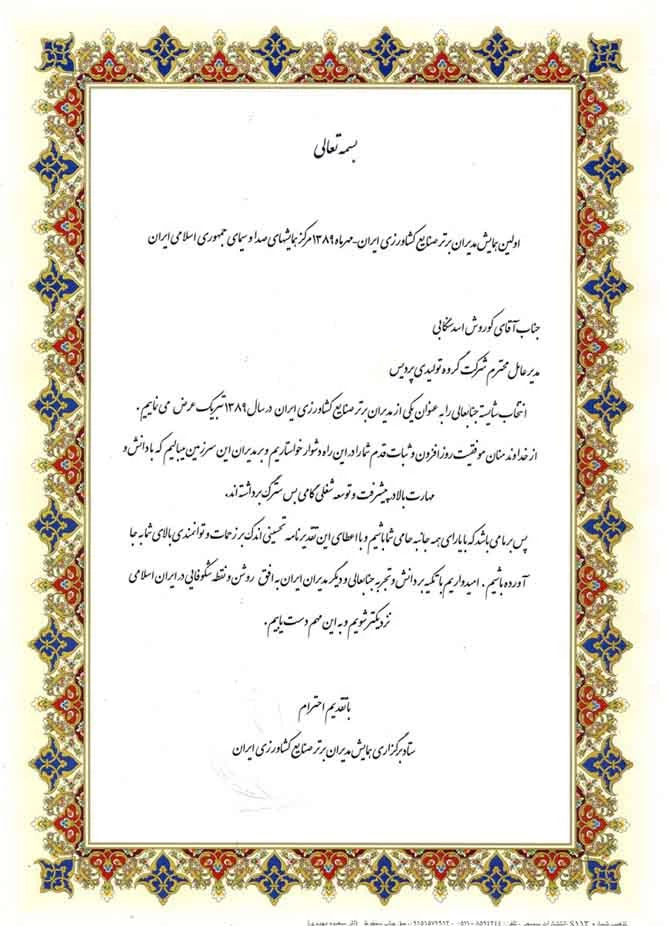 بسمه تعالی
اولین همایش مدیران برتر صنایع کشاورزی ایران-مهرماه ۱۳۸۹ مرکز همایشهای صدا و سیمای جمهوری اسلامی ایران
جناب آقای کوروش اسد
مدیر عامل محترم شرکت گروه تولیدی پردیس
انتخاب شایسته جنابعالی را به عنوان یکی از مدیران برتر صنایع کشاورزی ایران در سال ۱۳۸۹ تبریک عرض می نماییم .
از خداوند منان موفقیت روز افزون و ثبات قدم شما را در این راه دشوار خواستاریم و بر مدیران این سرزمین میبالیم که با دانش و
مهارت بالا در پیشرفت و توسعه شغلی گامی بس سترگ برداشته اند.
پس بر ما می باشد که با یارای همه جانبه حامی شما باشیم و با اعطای این تقدیرنامه تحسینی اندک بر زحمات و توانمندی بالای شما به جا
آورده باشیم . امیدواریم با تکیه بر دانش و تجربه جنابعالی و دیگر مدیران ایران به افق روشن و نقطه شکوفایی در ایران اسلامی
نزدیکتر شویم و به این مهم دست یابیم .
با تقدیم احترام
ستاد برگزاری همایش مدیران برتر صنایع کشاورزی ایران